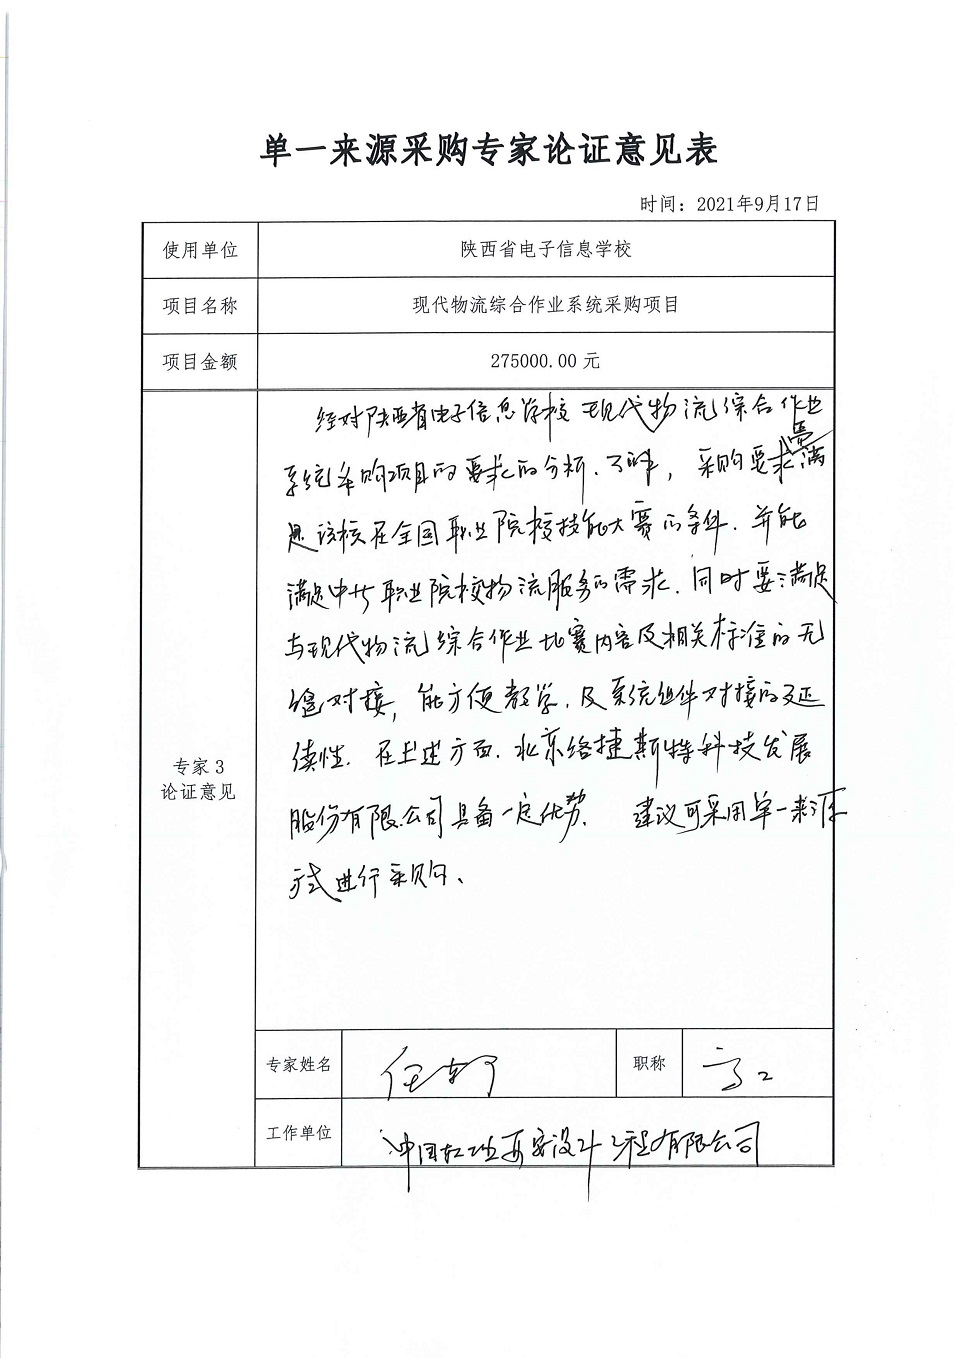 单一来源采购专家论证意见表
时间：2021年9月17日
使用单位 陕西省电子信息学校
项目名称 现代物流综合作业系统采购项目
项目金额 275000.00 元
专家 3
论证意见
经对陕西省电子信息学校现代物流综合作业
系统采购项目的要求的分析、了解，采购要求需满
足该校在全国职业院校技能大赛的条件．并能
满足中 职业院校物流服务的需求．同时要满足
与现代物流综合作业比赛内容及相关标准的无
缝对接，能方便教学．及系统组件对接的延
续性．在上述方面．北京络捷斯特科技发展
股份有限公司具备一定优势． 建议可采用单一来源
方式进行采购、
专家姓名 任 职称 高工
工作单位 中国 设计工程有限公司